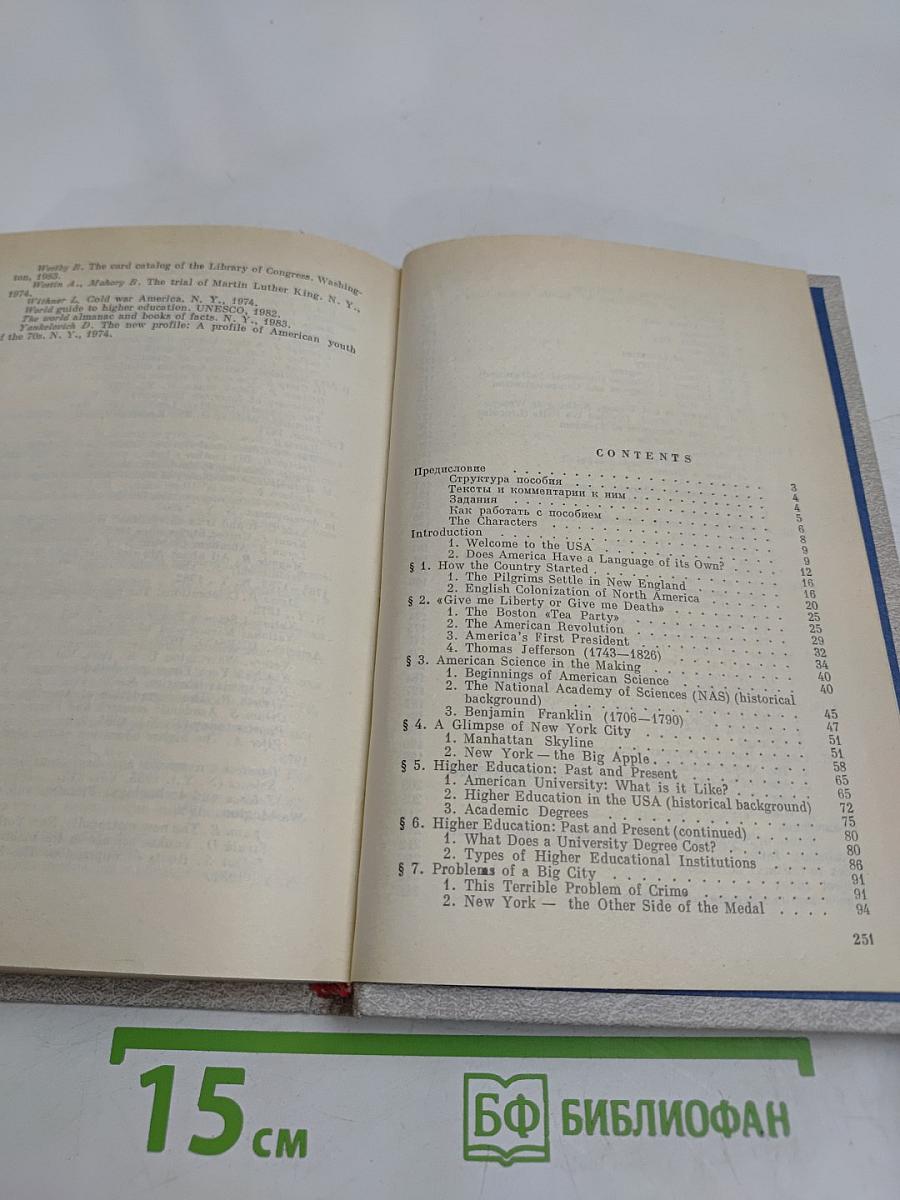 Westby B. The card catalog of the Library of Congress. Washing-
ton, 1983.
Westin A., Mahory B. The trial of Martin Luther King. N. Y.,
1974.
Withner L. Cold war America. N. Y., 1974.
World guide to higher education. UNESCO, 1982.
The world almanac and books of facts. N. Y., 1983.
Yankelovich D. The new profile: A profile of American youth
f the 70s. N. Y., 1974.
CONTENTS
Предисловие . . . . . . . . . . . . . . . . . 3
Структура пособия . . . . . . . . . . . . . . 4
Тексты и комментарии к ним . . . . . . . . . . 4
Задания . . . . . . . . . . . . . . . . . 5
Как работать с пособием . . . . . . . . . . . 6
The Characters . . . . . . . . . . . . . . 8
Introduction . . . . . . . . . . . . . . . . 9
1. Welcome to the USA . . . . . . . . . . . . 9
2. Does America Have a Language of its Own? . . . . 12
§ 1. How the Country Started . . . . . . . . . . . 16
1. The Pilgrims Settle in New England . . . . . . 16
2. English Colonization of North America . . . . . 20
§ 2. «Give me Liberty or Give me Death» . . . . . . . 25
1. The Boston «Tea Party» . . . . . . . . . . 25
2. The American Revolution . . . . . . . . . . 29
3. America's First President . . . . . . . . . . 32
4. Thomas Jefferson (1743—1826) . . . . . . . . 34
§ 3. American Science in the Making . . . . . . . . . 40
1. Beginnings of American Science . . . . . . . . 40
2. The National Academy of Sciences (NAS) (historical
background) . . . . . . . . . . . . . . 45
3. Benjamin Franklin (1706—1790) . . . . . . . . 47
§ 4. A Glimpse of New York City . . . . . . . . . . 51
1. Manhattan Skyline . . . . . . . . . . . . 51
2. New York — the Big Apple . . . . . . . . . . 58
§ 5. Higher Education: Past and Present . . . . . . . . 65
1. American University: What is it Like? . . . . . . 65
2. Higher Education in the USA (historical background) 72
3. Academic Degrees . . . . . . . . . . . . 75
§ 6. Higher Education: Past and Present (continued) . . . . 80
1. What Does a University Degree Cost? . . . . . . 80
2. Types of Higher Educational Institutions . . . . . 86
§ 7. Problems of a Big City . . . . . . . . . . . 91
1. This Terrible Problem of Crime . . . . . . . . 91
2. New York — the Other Side of the Medal . . . . 94
251
15 см
БФ БИБЛИОФАН